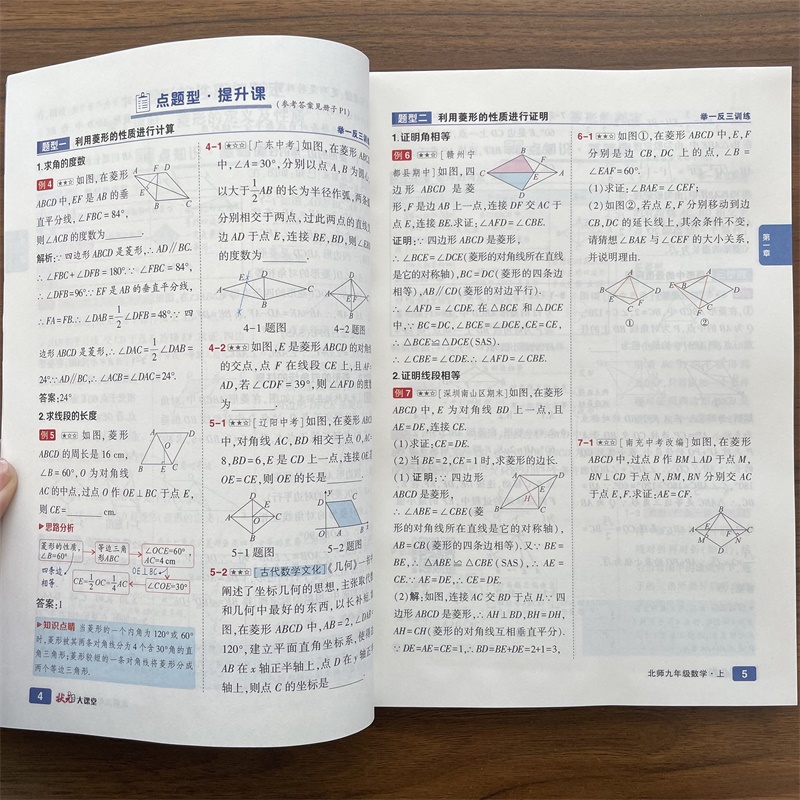 点题型·提升课
(参考答案见册子P1)
题型一 利用菱形的性质进行计算
1.求角的度数
例4 ★★☆ 如图,在菱形
ABCD中,EF是AB的垂
直平分线,∠FBC=84°,
则∠ACB的度数为______.
解析:∵四边形ABCD是菱形,∴AD∥BC.
∴∠FBC+∠DFB=180°.∵∠FBC=84°,
∴∠DFB=96°.∵EF是AB的垂直平分线,
∴FA=FB.∴∠DAB=1/2∠DFB=48°.∵四
边形ABCD是菱形,∴∠DAC=1/2∠DAB=
24°.∵AD∥BC,∴∠ACB=∠DAC=24°.
答案:24°
2.求线段的长度
例5 ★☆☆ 如图,菱形
ABCD的周长是16 cm,
∠B=60°,O为对角线
AC的中点,过点O作OE⊥BC于点E,
则CE=______cm.
思路分析
菱形的性质,
∠B=60°
等边三角
形ABC
∠OCE=60°,
AC=4 cm
四条边
相等
OE⊥BC
CE=1/2OC=1/4AC
∠COE=30°
答案:1
知识点睛 当菱形的一个内角为120°或60°
时,菱形被其两条对角线分为4个含30°角的直
角三角形;菱形较短的一条对角线将菱形分成
两个等边三角形.
4 状元大课堂
举一反三训练
4-1 ★☆☆ [广东中考]如图,在菱形ABC
中,∠A=30°,分别以点A,B为圆心
以大于1/2AB的长为半径作弧,两条
分别相交于两点,过此两点的直线
边AD于点E,连接BE,BD,则∠E
的度数为______.
4-1题图
4-2题图
4-2 ★★☆ 如图,E是菱形ABCD的对角
的交点,点F在线段CE上,且AF
AD,若∠CDF=39°,则∠AFD的度
为______.
5-1 ★★☆ [辽阳中考]如图,在菱形ABC
中,对角线AC,BD相交于点O,AC
8,BD=6,E是CD上一点,连接OE
OE=CE,则OE的长是______.
5-1题图
5-2题图
5-2 ★★☆ [古代数学文化]《几何》一书
阐述了坐标几何的思想,主张取代
和几何中最好的东西,以长补短.
图,在菱形ABCD中,AB=2,∠
120°,建立平面直角坐标系,使得
AB在x轴正半轴上,点D在y轴正
轴上,则点C的坐标是______.
题型二 利用菱形的性质进行证明
1.证明角相等
例6 ★★☆ [赣州宁
都县期中]如图,四
边形ABCD是菱
形,F是边AB上一点,连接DF交AC于
点E,连接BE.求证:∠AFD=∠CBE.
证明:∵四边形ABCD是菱形,
∴∠BCE=∠DCE(菱形的对角线所在直线
是它的对称轴),BC=DC(菱形的四条边
相等),AB∥CD(菱形的对边平行).
∴∠AFD=∠CDE.在△BCE和△DCE
中,∵BC=DC,∠BCE=∠DCE,CE=CE,
∴△BCE≌△DCE(SAS).
∴∠CBE=∠CDE.∴∠AFD=∠CBE.
2.证明线段相等
例7 ★★☆ [深圳南山区期末]如图,在菱形
ABCD中,E为对角线BD上一点,且
AE=DE,连接CE.
(1)求证:CE=DE.
(2)当BE=2,CE=1时,求菱形的边长.
(1)证明:∵四边形
ABCD是菱形,
∴∠ABE=∠CBE(菱
形的对角线所在直线是它的对称轴),
AB=CB(菱形的四条边相等).又∵BE=
BE,∴△ABE≌△CBE(SAS),∴AE=
CE.∵AE=DE,∴CE=DE.
(2)解:如图,连接AC交BD于点H.∵四
边形ABCD是菱形,∴AH⊥BD,BH=DH,
AH=CH(菱形的对角线互相垂直平分).
∵DE=AE=CE=1,∴BD=BE+DE=2+1=3,
举一反三训练
6-1 ★★☆ 如图①,在菱形ABCD中,E,F
分别是边CB,DC上的点,∠B=
∠EAF=60°.
(1)求证:∠BAE=∠CEF;
(2)如图②,若点E,F分别移动到边
CB,DC的延长线上,其余条件不变,
请猜想∠BAE与∠CEF的大小关系,
并说明理由.
① ②
7-1 ★★☆ [南充中考改编]如图,在菱形
ABCD中,过点B作BM⊥AD于点M,
BN⊥CD于点N,BM,BN分别交AC
于点E,F.求证:AE=CF.
第一章
北师九年级数学·上 5